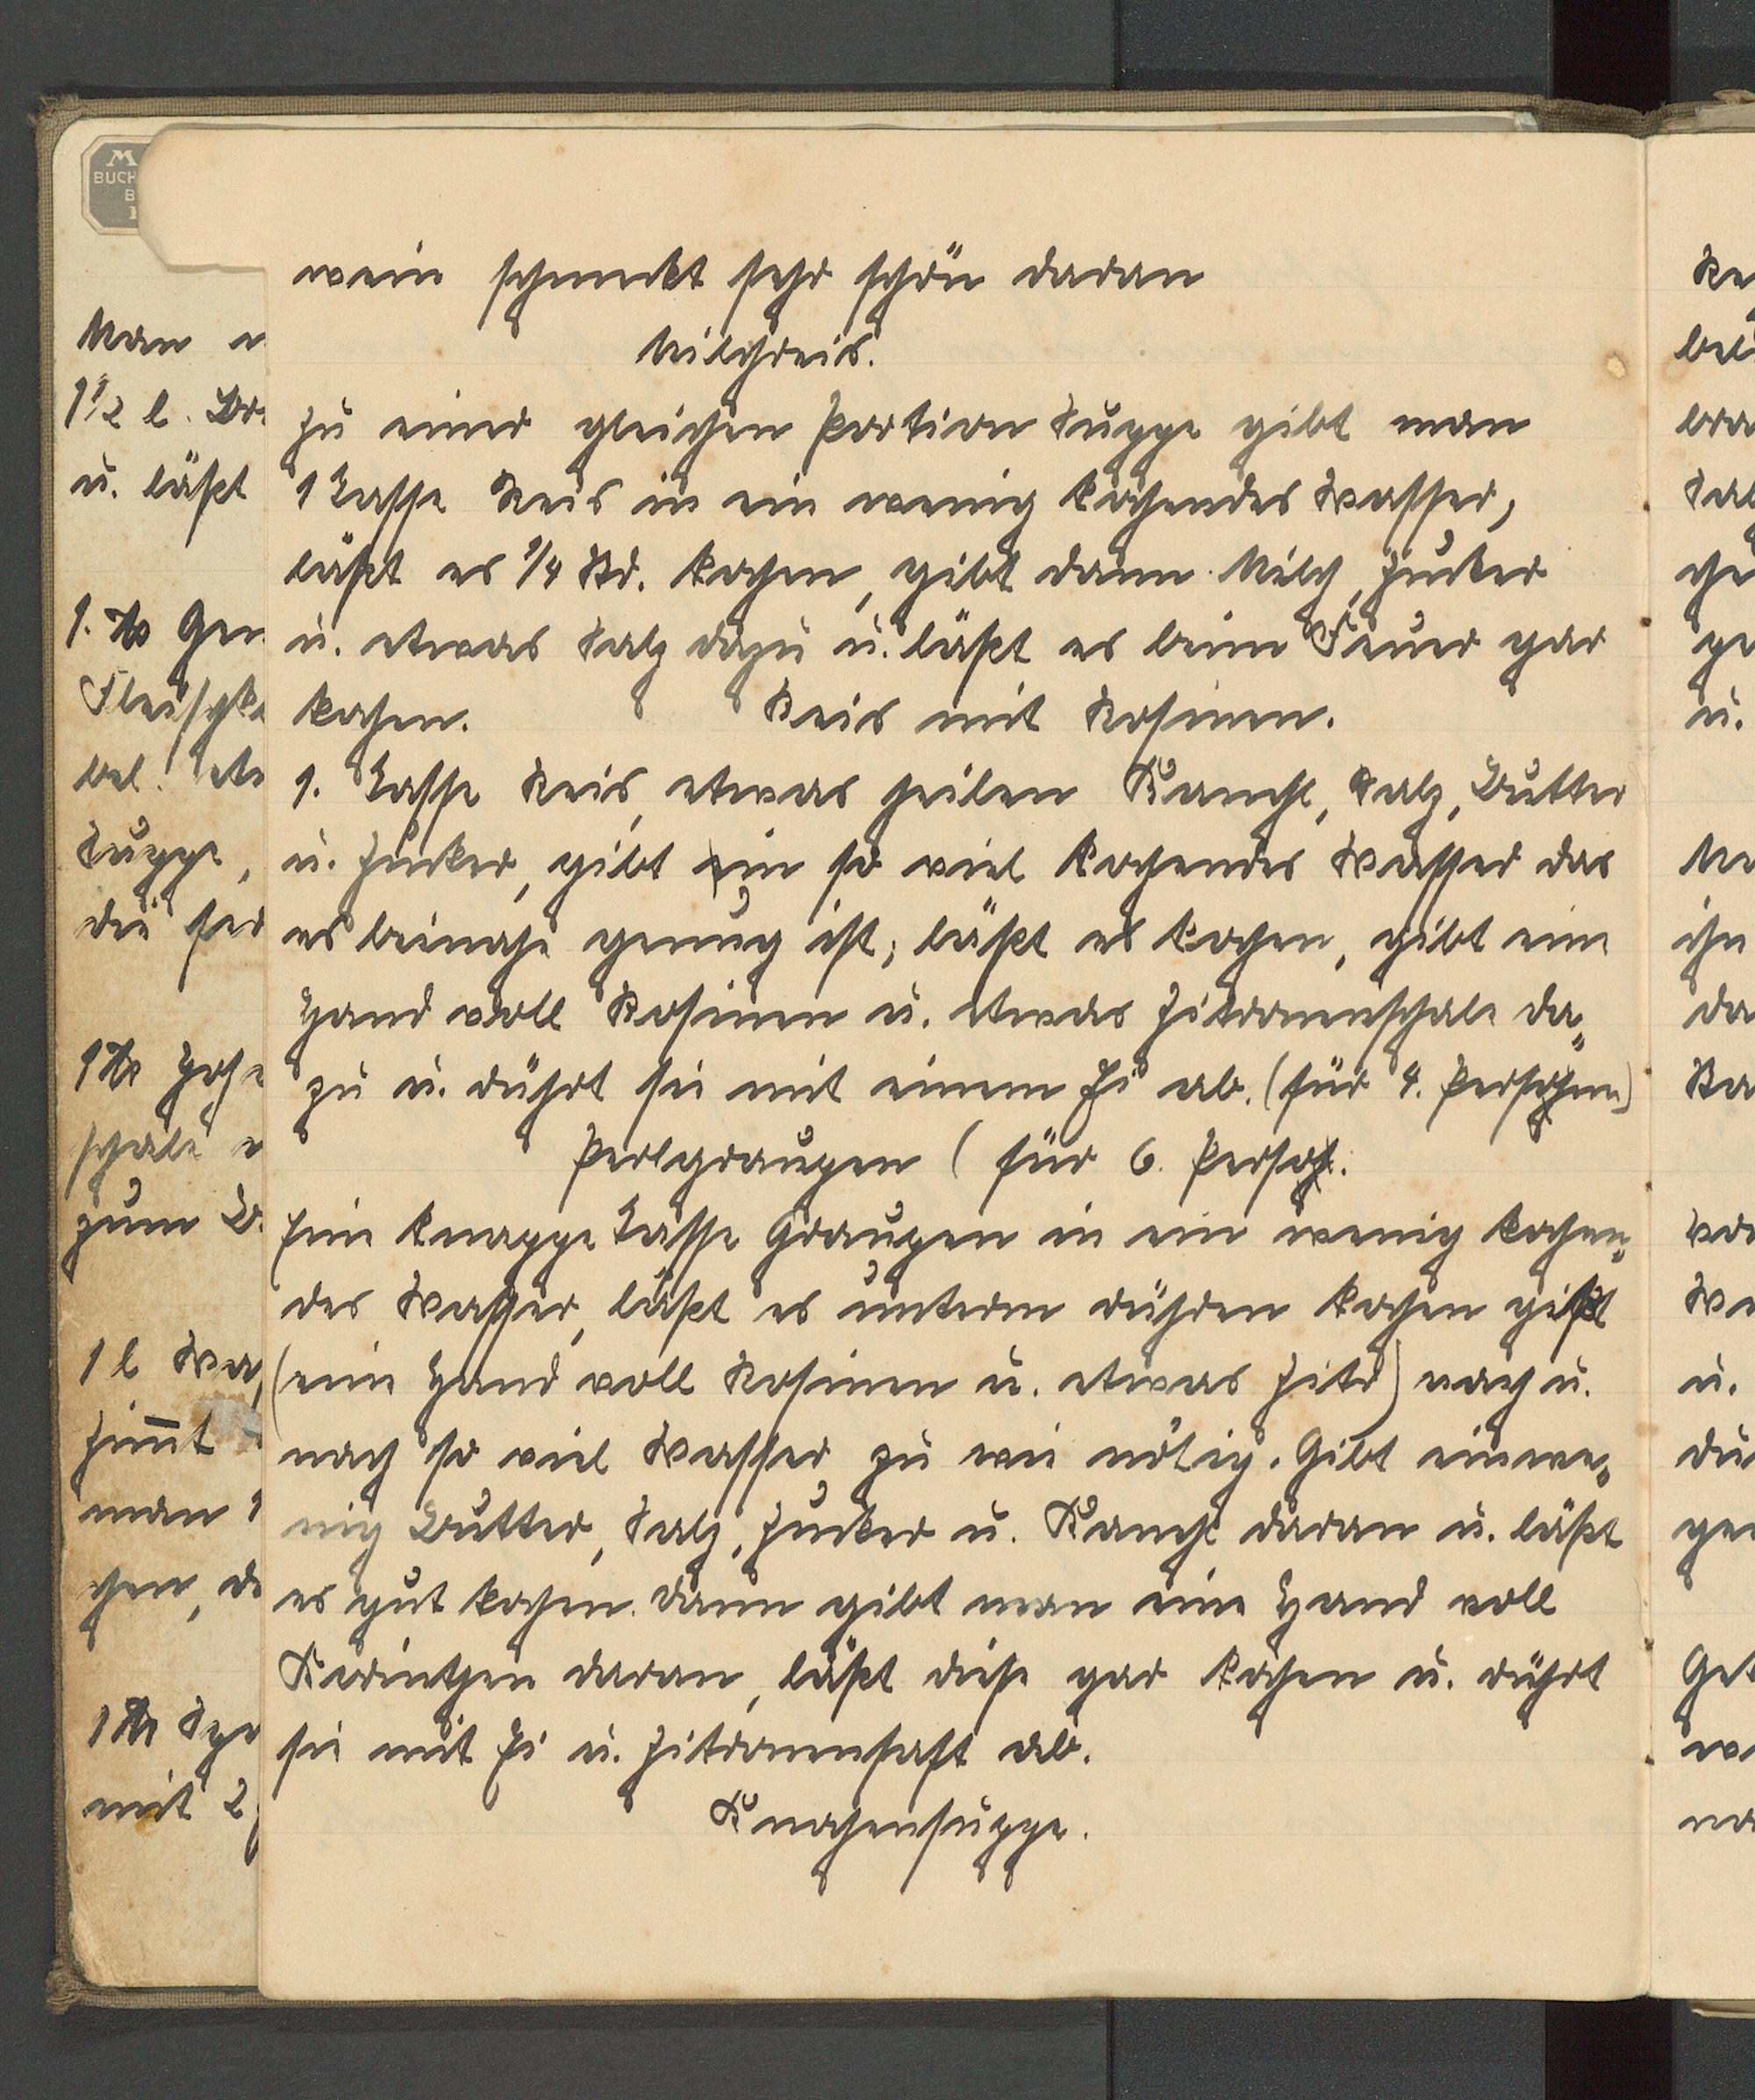 M
BUCH
B
Man
1 1/2 l.
u. läßt
1. ℔
Fleischk
bel.
Suppe,
die
1 ℔
schale
zum
1 l Wa
Zimmt
man
gen, d
1 ℔
mit 2
wein schmeckt sehr schön daran
Milchreis.
Zu einer gleichen Portion Suppe gibt man
1 Tasse Reis in ein wenig kochendes Wasser,
läßt es 1/4 Std. kochen, gibt dann Milch, Zucker
u. etwas Salz dazu u. läßt es beim Feuer gar
kochen. Reis mit Rosinen.
1. Tasse Reis, etwas heilen Kaneehl, Salz, Butter
u. Zucker, gibt in so viel kochendes Wasser das
es beinahe genug ist; läßt es kochen, gibt eine
Hand voll Rosinen u. etwas Zitronenschale da=
zu u. rührt sie mit einem Ei ab. (für 4. Personen)
Perlgraupen (für 6. Pers.
Eine knappe Tasse Graupen in ein wenig kochen=
des Wasser, läßt es unterm rühren kochen gibt
(eine Hand voll Rosinen u. etwas Zitr) nach u.
nach so viel Wasser zu wie nötig. Gibt ein we=
nig Butter, Salz, Zucker u. Kaneehl daran u. läßt
es gut kochen. Dann gibt man eine Hand voll
Korinthen daran, läßt diese gar kochen u. rührt
sie mit Ei u. Zitronensaft ab.
Knochensuppe.
Re
bei
bra
Sal
ge
ge
u.
Me
ihn
da
vor
Wa
u.
Get